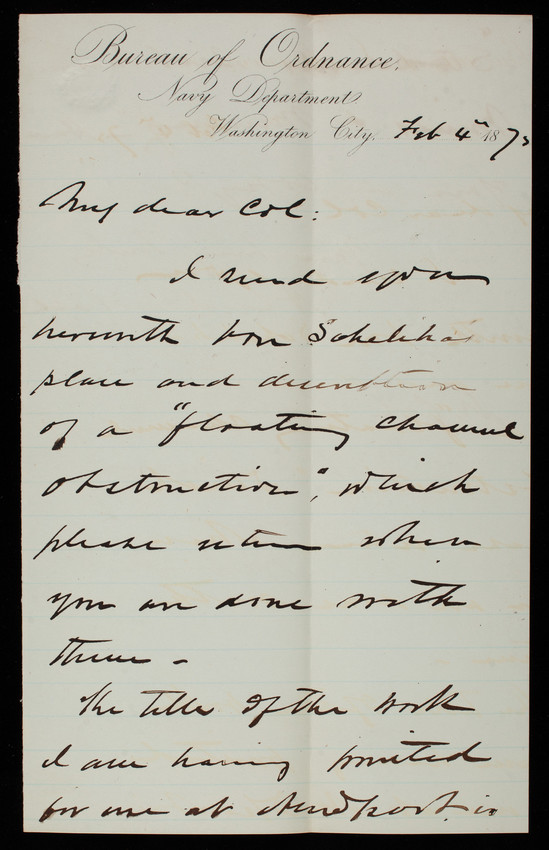 Bureau of Ordnance,
Navy Department
Washington City, Feb 4th 187
My dear Col:
I send you
herewith Von Scheliha
plan and description
of a "floating channel
obstruction", which
please return when
you are done with
them -
The title of the work
I am having printed
for use at Newport is